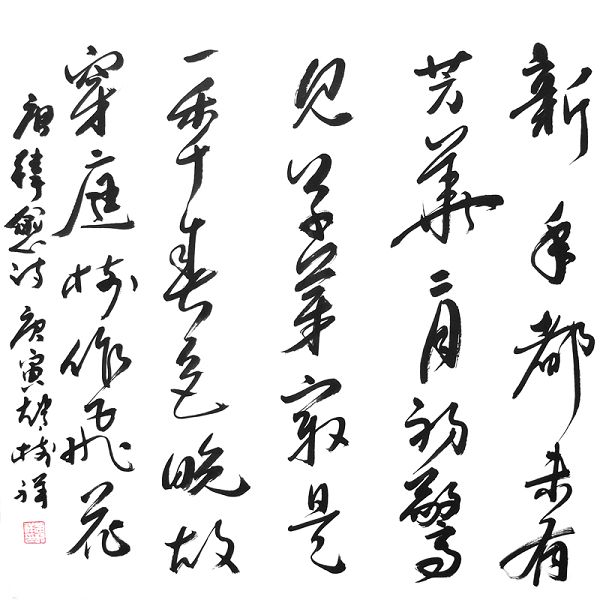 新年都未有
芳華二月初驚
見草芽最是
一年春色晚故
穿庭樹作飛花
唐韓愈詩 庚寅 樹祥